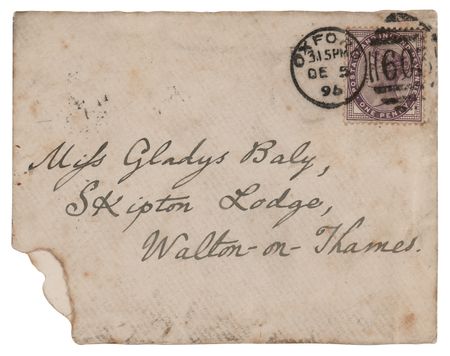 OXFO
3.15PM
DE 5
96
603
POSTAGE AND IN
ONE PENNY
Miss Gladys Baly,
Skipton Lodge,
Walton-on-Thames.